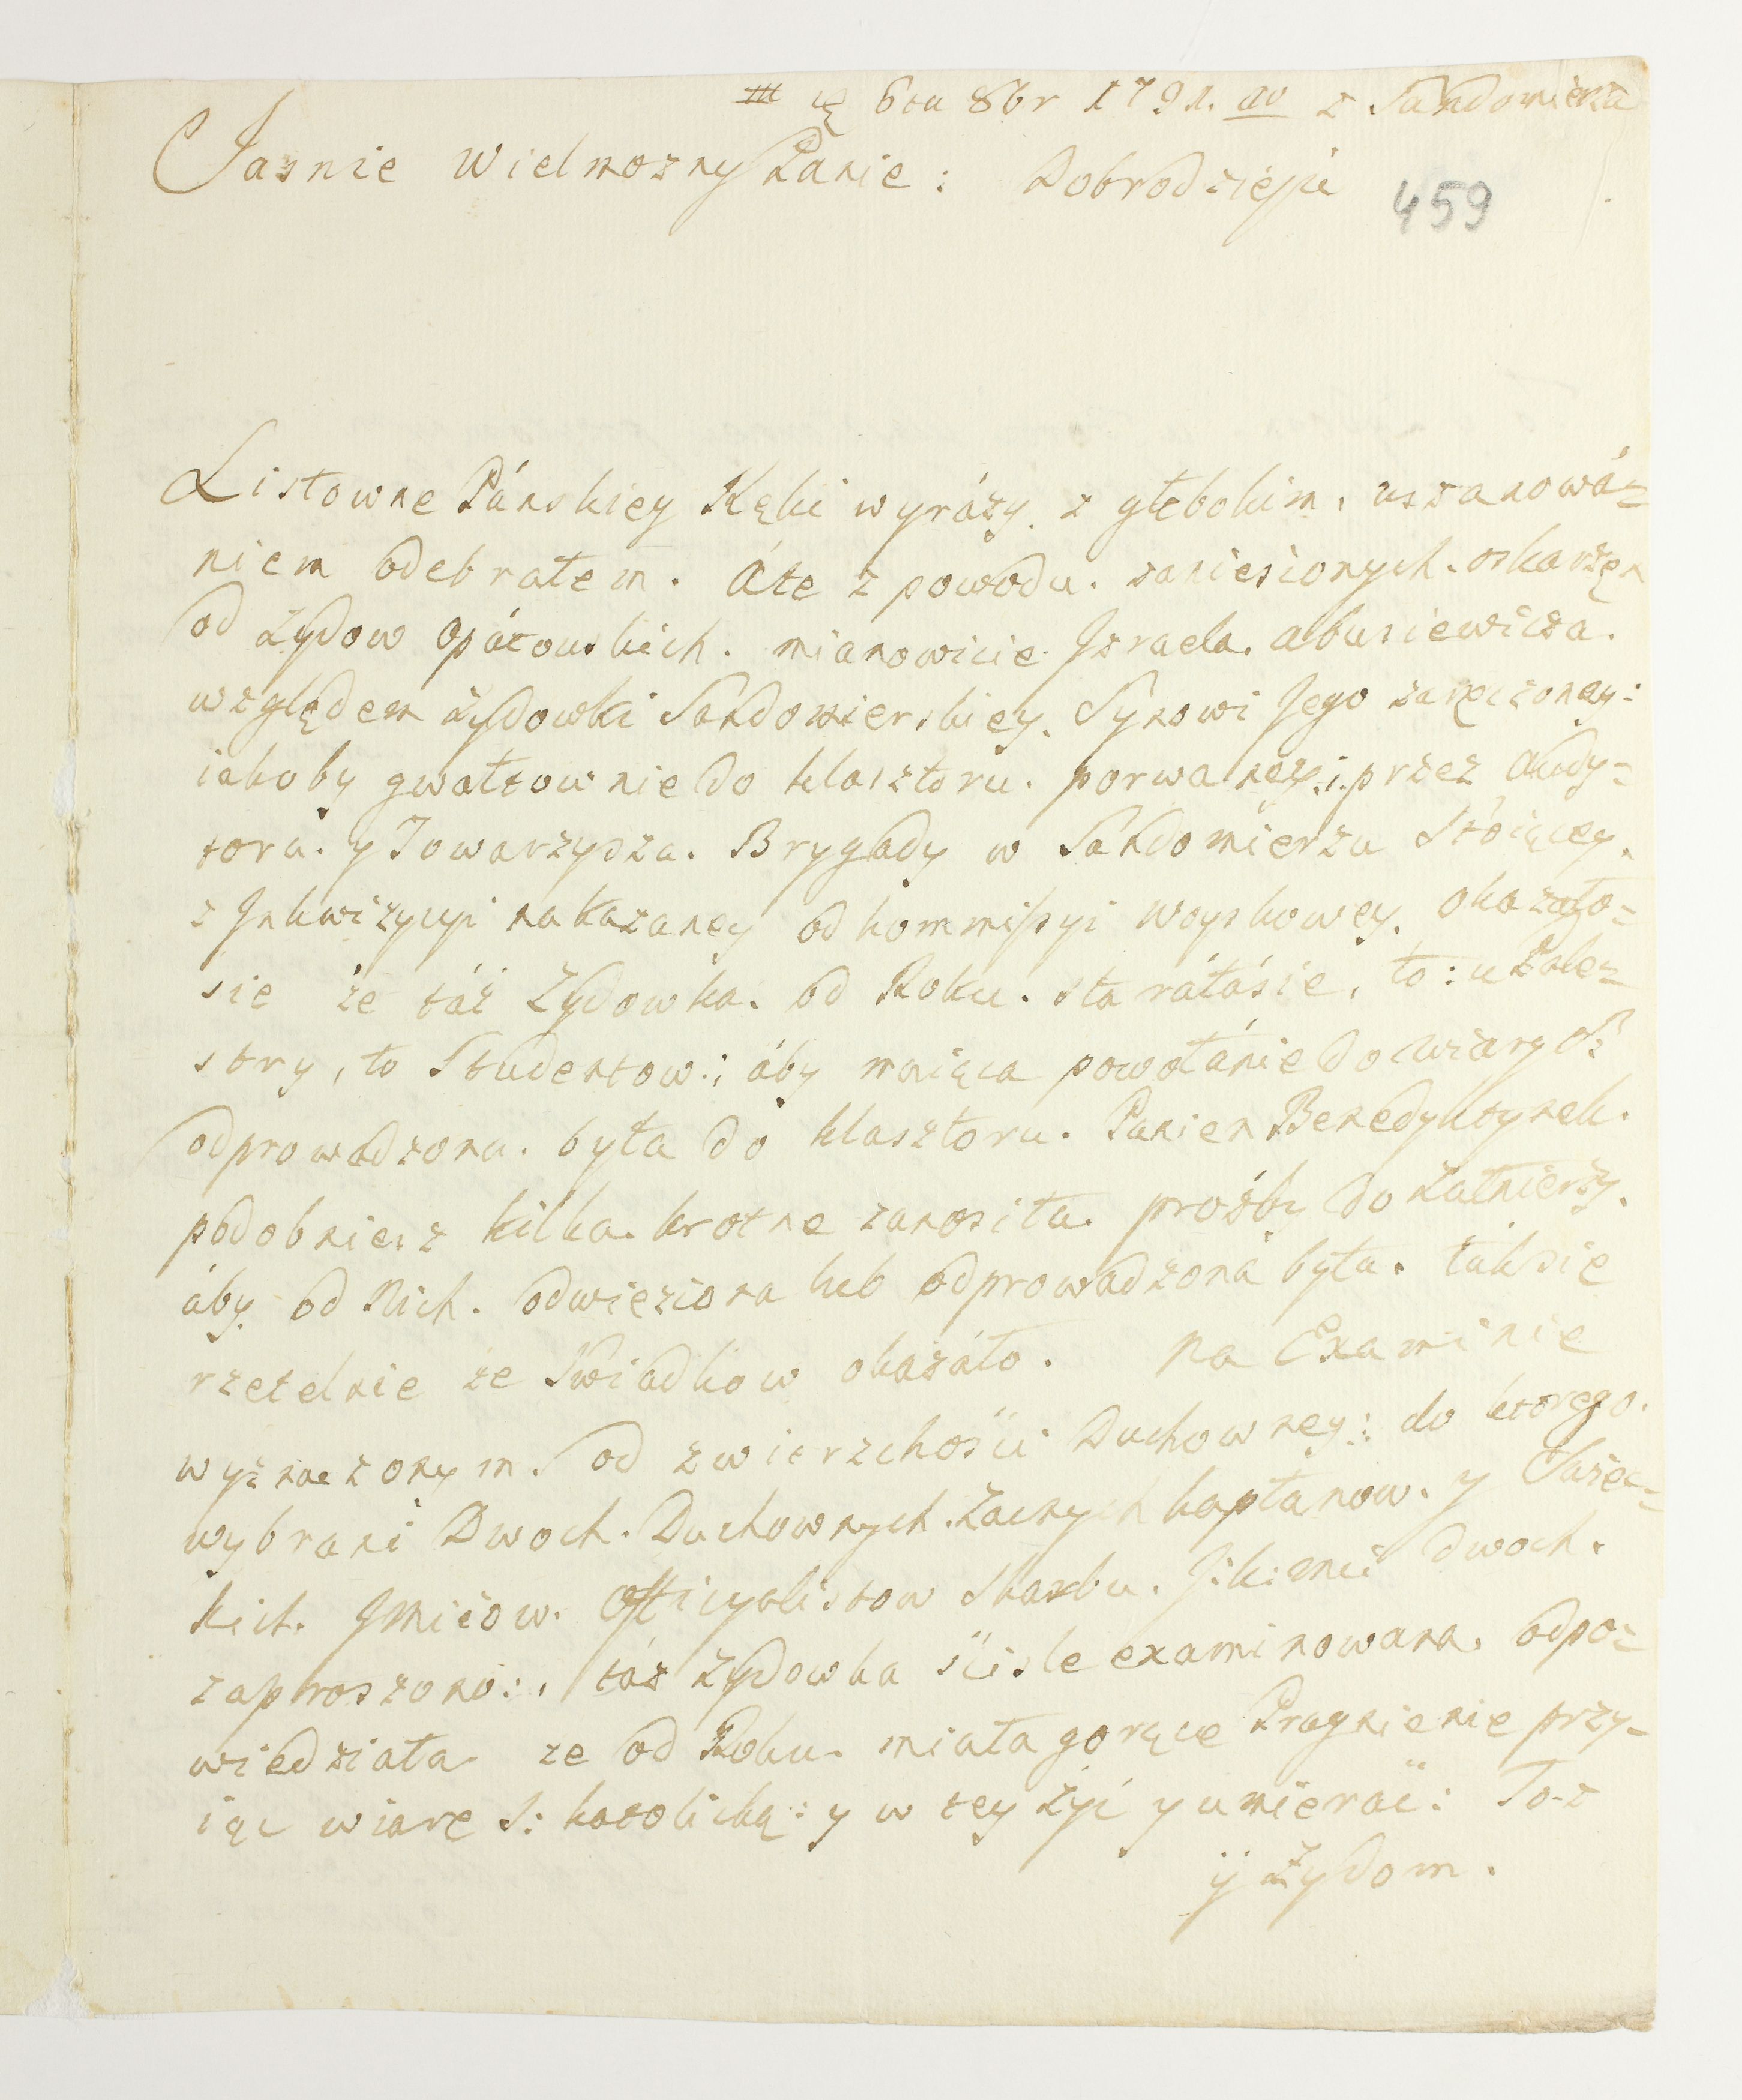 6ta 8br 1791. ao z Sandomierza
Jasnie Wielmozny Panie: Dobrodzieju
459
Listowne Pánskiey Ręki wyrázy. z głebokim. uszanowá-
niem odebrałem. Áłe z powodu. zaniesionych. oskarżęn
od Żydow Opátowskich. mianowicie Jzraela. abusiewicza.
względem Żydowki Sandomierskiey. Synowi Jego zaręczoney:
iakoby gwałtownie do klasztoru. porwaney: przez Audy-
tora. y Towarzysza. Brygády w Sandomierzu Stóiącey.
z Jnkwizycyi nakazaney od kommissyi woyskowey. okazáło-
sie że táż Żydowka. od Roku. starátásie, to: u Pales-
stry, to Studentow:; áby maiąca powołánie do wiary S:
odprowadzona. była do klasztoru. Panien Benedyktynek.
podobniesz kilka. krotne zanosiła. prożby do Żałnierzy.
áby od Nich. odwieziona lub odprowadzoná była. ták sie
rzetelnie ze Swiadkow okazáło. Na Examinie
wyznaczonym. od zwierzchośći Duchowney:; do ktorego.
wybrani Dwoch. Duchownych. Zacnych kapłanow. y Swiec-
kich. Jmćiow. Officyalistow Skarbu. J: k: mci dwoch.
zaproszono:, táż Żydowka śćisle examinowana. odpo-
wiedziała ze od Roku. miała gorące Pragnienie przy-
iąc wiarę S: katolicką: y w tey żyć y umierać: To-z
ÿ Żydom.